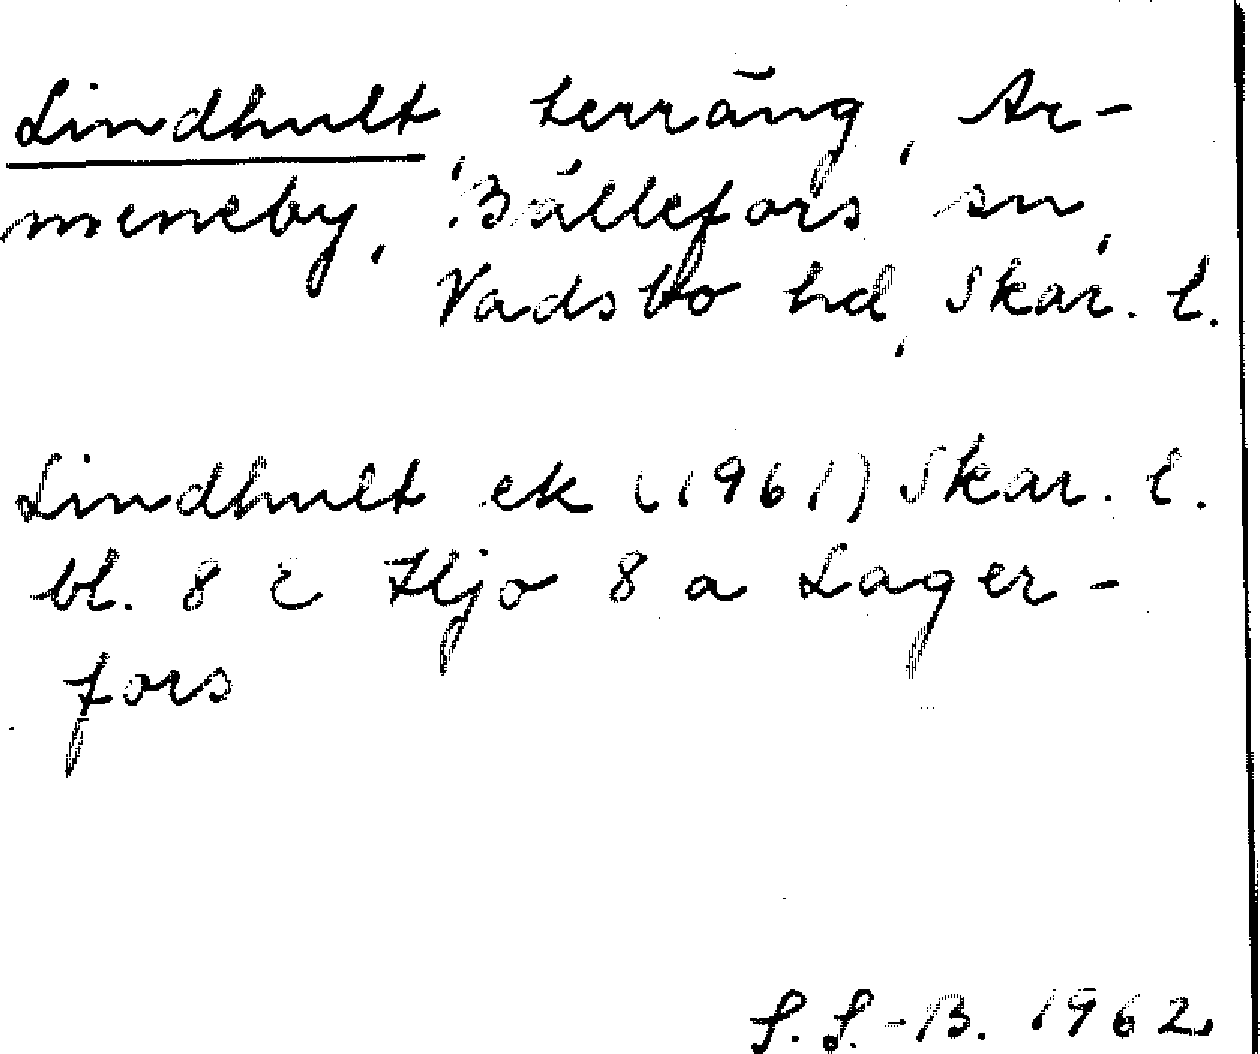 Lindhult, terräng, Ar-
meneby, Bällefors sn,
Vadsbo hd, Skar. l.
Lindhult ek (1961) Skar. l.
bl. 8 c Hjo 8 a Lager-
fors
S. S.-B. 1962